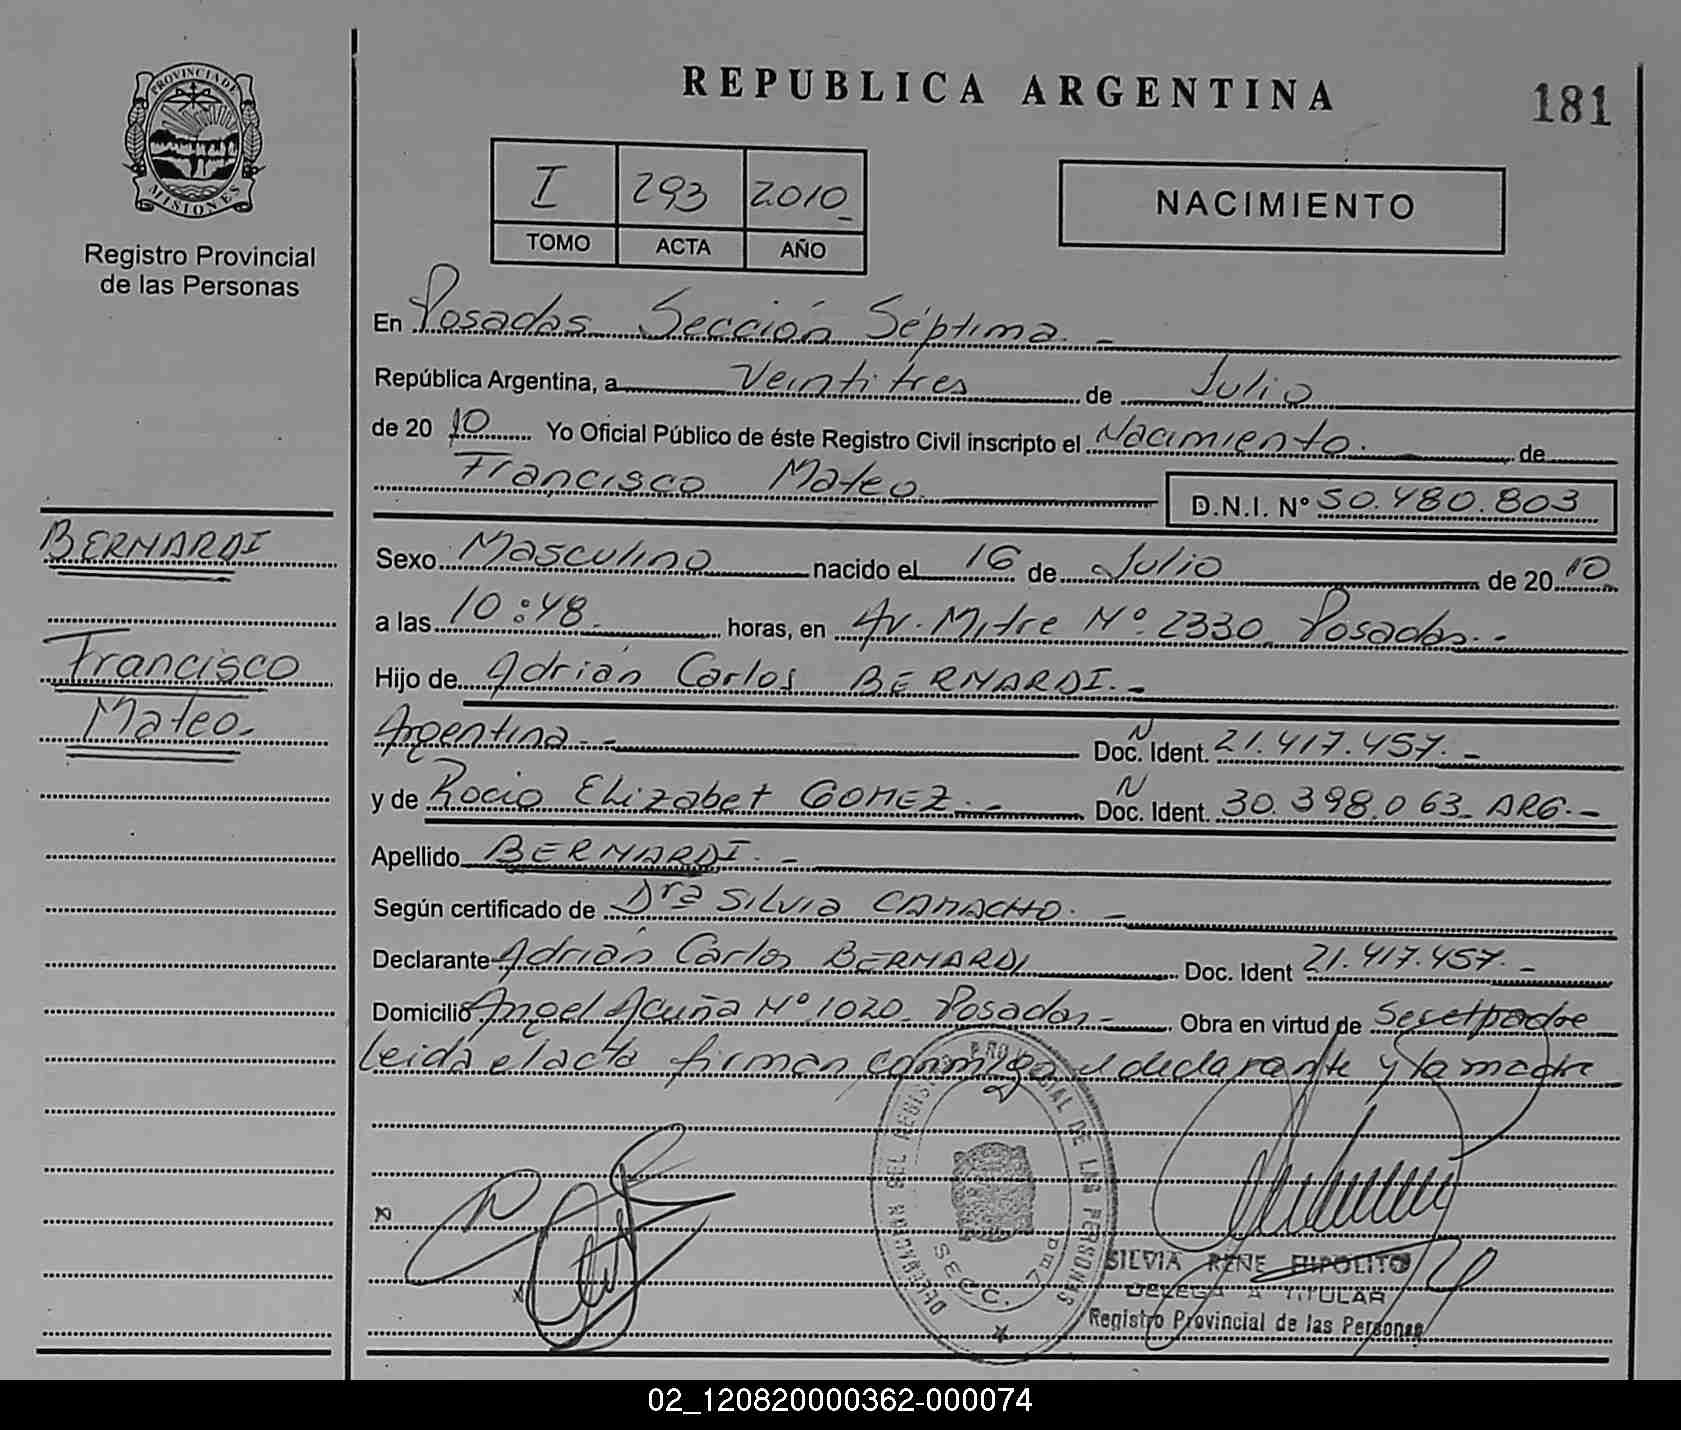 PROVINCIA DE
MISIONES
Registro Provincial
de las Personas
BERNARDI
Francisco
Mateo.-
REPUBLICA ARGENTINA
181
I 293 2010_
TOMO ACTA AÑO
NACIMIENTO
En Posadas Sección Séptima. -
República Argentina, a Veintitres de Julio
de 20 10 Yo Oficial Público de éste Registro Civil inscripto el Nacimiento. de
Francisco Mateo. D.N.I. Nº 50.480.803
Sexo Masculino nacido el 16 de Julio de 20 10
a las 10:48. horas, en Av. Mitre Nº. 2330 Posadas.-
Hijo de Adrián Carlos BERNARDI.-
Argentina.- N Doc. Ident. 21.417.457. -
y de Rocio Elizabet GOMEZ.- N Doc. Ident. 30.398.063_ ARG.-
Apellido BERNARDI. -
Según certificado de Dra Silvia CAMACHO. -
Declarante Adrián Carlos BERNARDI Doc. Ident 21.417.457. -
Domicilio Angel Acuña Nº 1020_ Posadas- Obra en virtud de Ser el padre
Leida el acta firman conmigo el declarante y la madre
DEL REGISTRO PROVINCIAL DE LAS PERSONAS
SECC. 7ma
SILVIA RENE HIPOLITO
DELEGADA TITULAR
Registro Provincial de las Personas
02_120820000362-000074